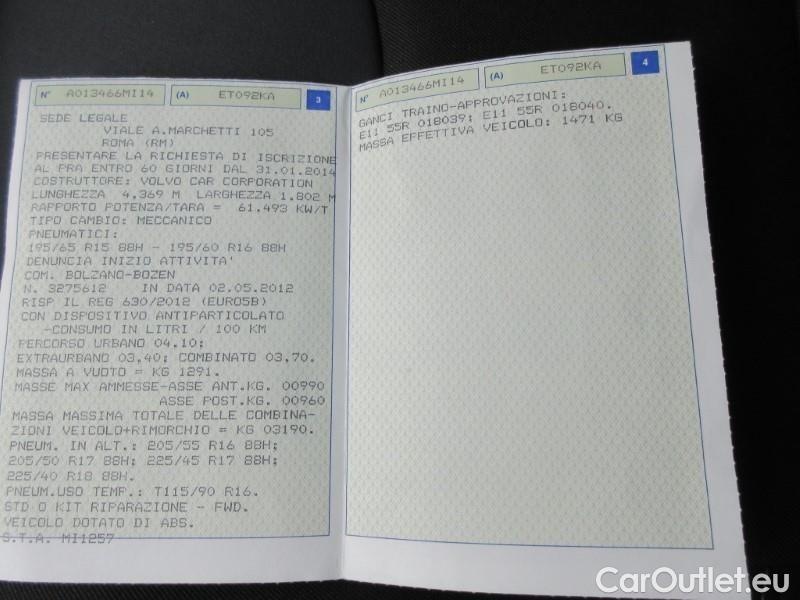 N° A013466MI14 (A) ET092KA 3
SEDE LEGALE
VIALE A.MARCHETTI 105
ROMA (RM)
PRESENTARE LA RICHIESTA DI ISCRIZIONE
AL PRA ENTRO 60 GIORNI DAL 31.01.2014
COSTRUTTORE: VOLVO CAR CORPORATION
LUNGHEZZA 4,369 M LARGHEZZA 1,802 M
RAPPORTO POTENZA/TARA = 61,493 KW/T
TIPO CAMBIO: MECCANICO
PNEUMATICI:
195/65 R15 88H - 195/60 R16 88H
DENUNCIA INIZIO ATTIVITA'
COM. BOLZANO-BOZEN
N. 3275612 IN DATA 02.05.2012
RISP IL REG 630/2012 (EURO5B)
CON DISPOSITIVO ANTIPARTICOLATO
-CONSUMO IN LITRI / 100 KM
PERCORSO URBANO 04,10;
EXTRAURBANO 03,40; COMBINATO 03,70.
MASSA A VUOTO = KG 1291.
MASSE MAX AMMESSE-ASSE ANT.KG. 00990
ASSE POST.KG. 00960
MASSA MASSIMA TOTALE DELLE COMBINA-
ZIONI VEICOLO+RIMORCHIO = KG 03190.
PNEUM. IN ALT.: 205/55 R16 88H;
205/50 R17 88H; 225/45 R17 88H;
225/40 R18 88H.
PNEUM.USO TEMP.: T115/90 R16.
STD O KIT RIPARAZIONE - FWD.
VEICOLO DOTATO DI ABS.
S.T.A. MI1257
N° A013466MI14 (A) ET092KA 4
GANCI TRAINO-APPROVAZIONI:
E11 55R 018039; E11 55R 018040.
MASSA EFFETTIVA VEICOLO: 1471 KG
CarOutlet.eu